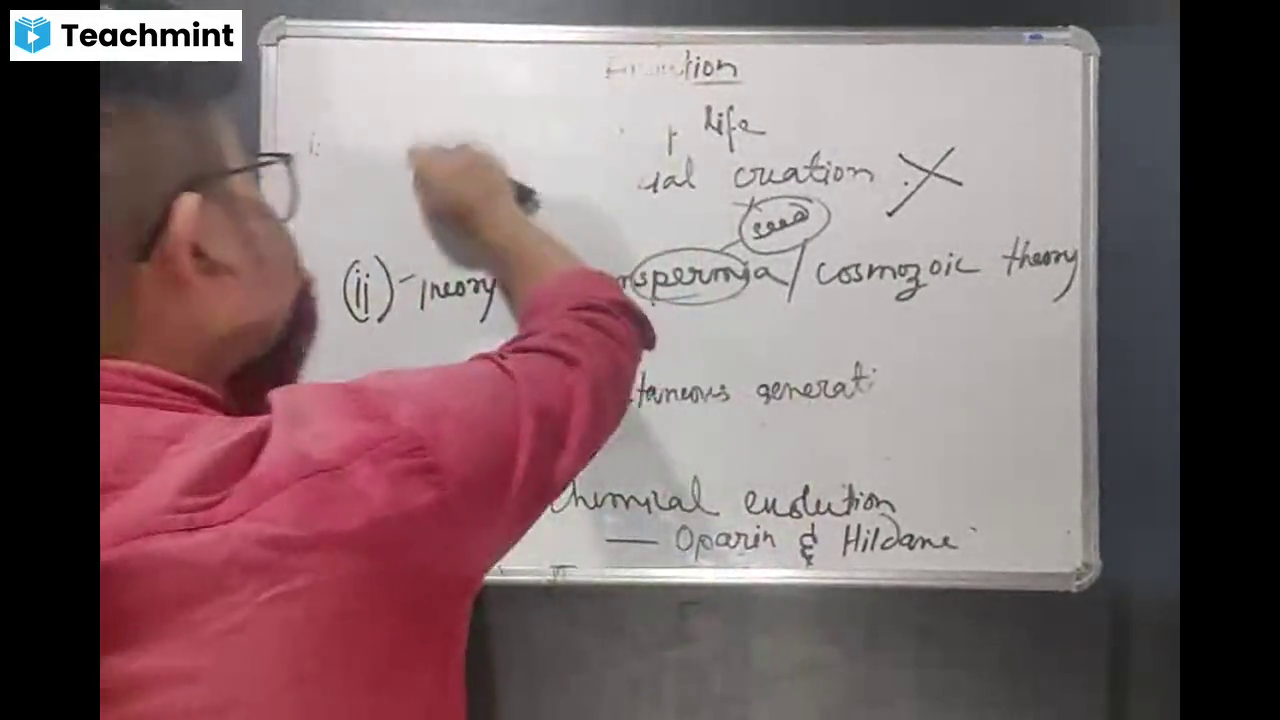 Teachmint
Life
creation
seed
(ii) Theory nspermia / cosmozoic theory
taneous generati
Chemical evolution
— Oparin & Hildane